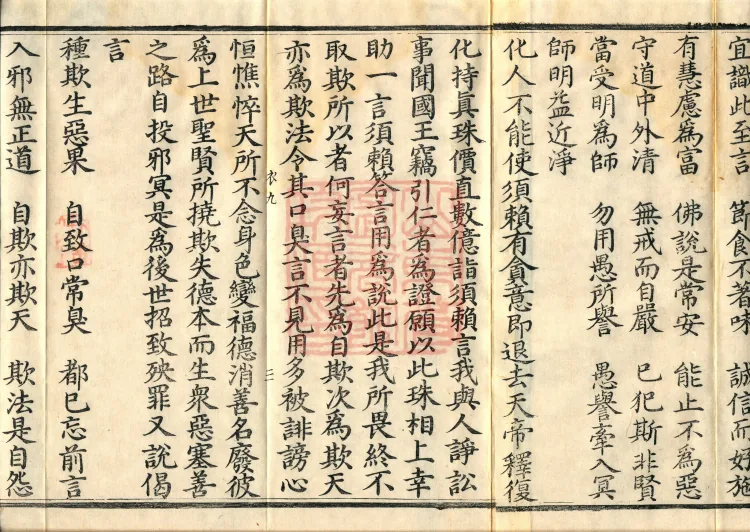 宜識此至言　節食不著味　誠信而好施
有慧慮為富　佛說是常安　能止不為惡
守道中外清　無戒而自嚴　已犯斯非賢
當受明為師　勿用愚所譽　愚譽牽入冥
師明益近淨
化人不能使須賴有貪意即退去天帝釋復
化持真珠價直數億詣須賴言我與人諍訟
事聞國王竊引仁者為證願以此珠相上幸
助一言須賴答言用為說此是我所畏終不
取欺所以者何妄言者先為自欺次為欺天
亦為欺法令其口臭言不見用多被誹謗心
衣九　三
恒憔悴天所不念身色變福德消善名廢彼
為上世聖賢所撓欺失德本而生眾惡塞善
之路自投邪冥是為後世招致殃罪又說偈
言
種欺生惡果　自致口常臭　都已忘前言
入邪無正道　自欺亦欺天　欺法是自怨